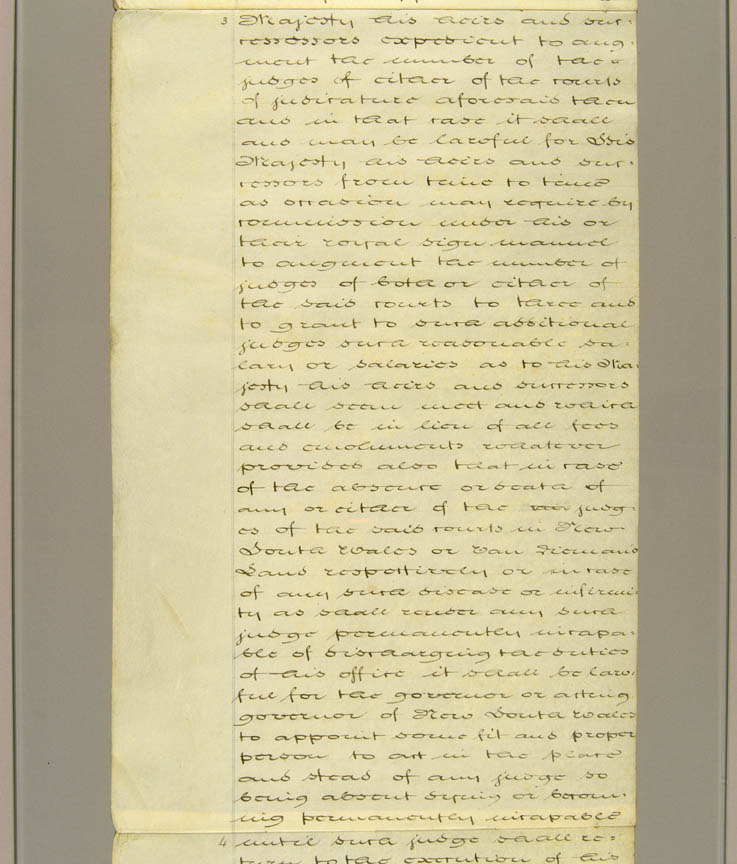 3 Majesty his heirs and suc:
cessors expedient to aug:
ment the number of the
judges of either of the courts
of judicature aforesaid then
and in that case it shall
and may be lawful for His
Majesty his heirs and suc:
cessors from time to time
as occasion may require by
commission under his or
their royal sign manual
to augment the number of
judges of both or either of
the said courts to three and
to grant to such additional
judges such reasonable sa:
lary or salaries as to his Ma:
jesty his heirs and successors
shall seem meet and which
shall be in lieu of all fees
and emoluments whatever
provided also that in case
of the absence or death of
any or either of the judg:
es of the said courts in New
South Wales or Van Diemans
Land respectively or in case
of any such disease or infirmi:
ty as shall render any such
judge permanently incapa:
ble of discharging the duties
of his office it shall be law:
ful for the governor or acting
governor of New South Wales
to appoint some fit and proper
person to act in the place
and stead of any judge so
being absent dying or becom:
ing permanently incapable
4 until such judge shall re:
turn to the execution of his